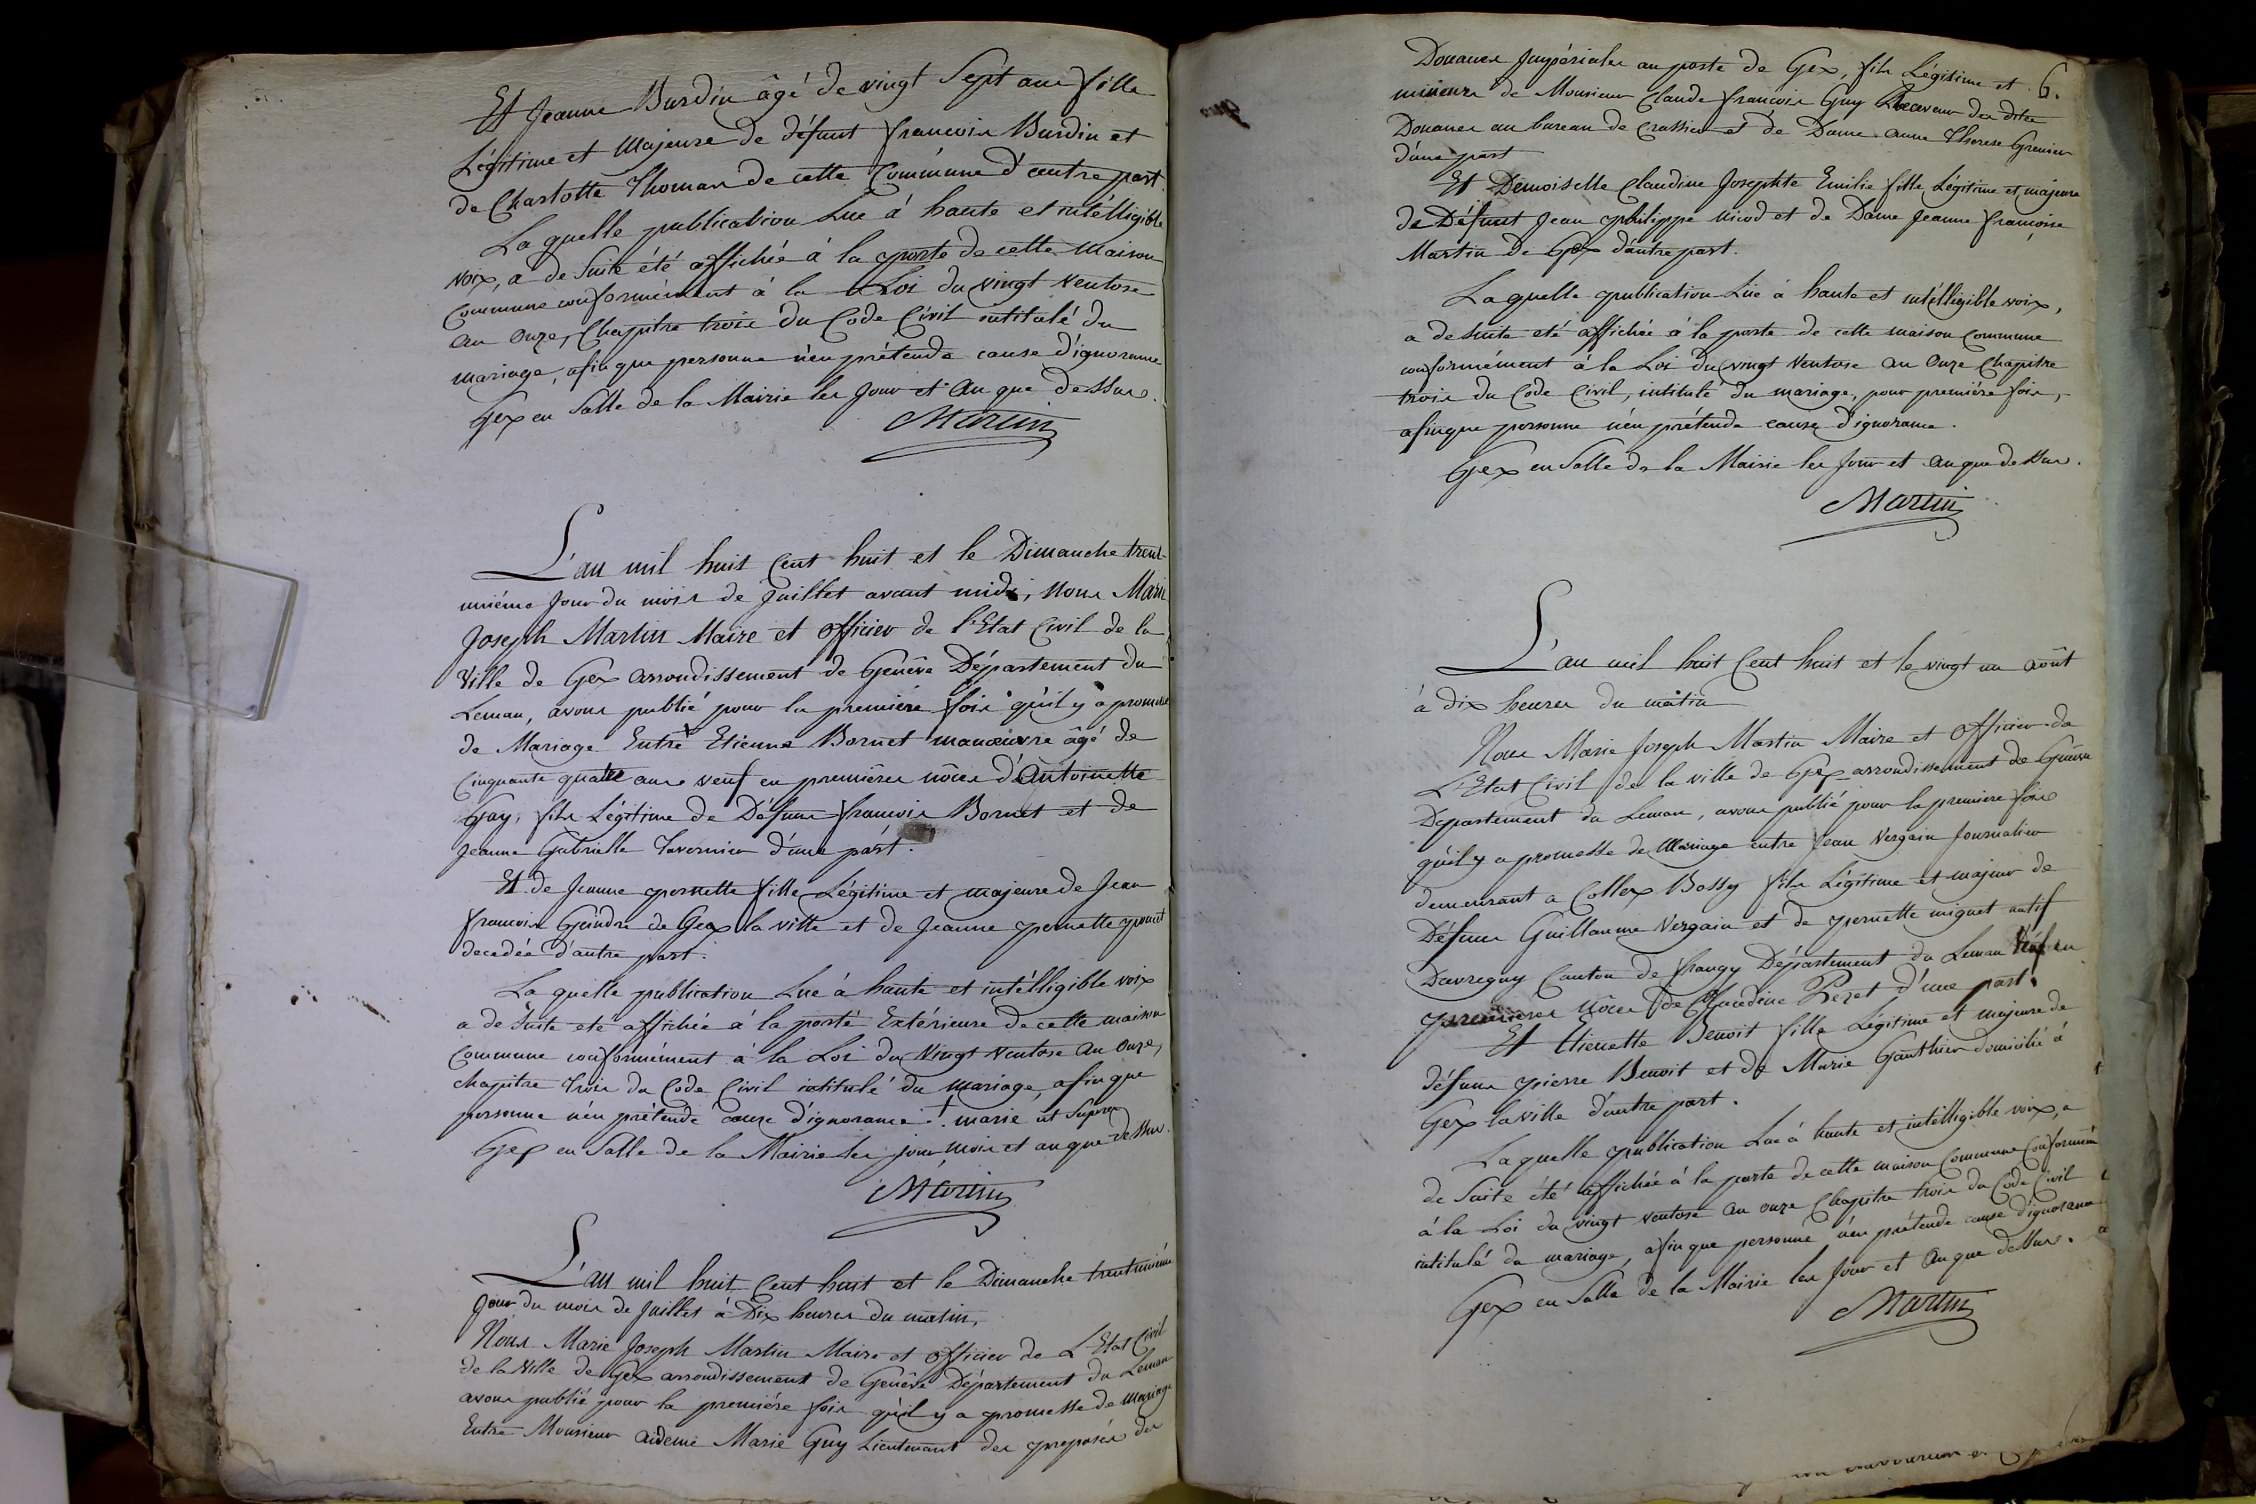 Et Jeanne Burdin âgé de vingt Sept ans fille
Légitime et Majeure de défunt francois Burdin et
de Charlotte Thomas de cette Commune d'autre part.
Laquelle publication Lue à haute et intélligible
voix, a de Suite été affichée à la porte de cette Maison
Commune conformément à la Loi du vingt Ventose
an Onze, Chapitre trois du Code Civil intitulé du
mariage, afin que personne n'en prétende cause d'ignorance
Gex en Salle de la Mairie les Jour et An que dessus.
Martin
L'an mil huit Cent huit et le Dimanche trent-
unième Jour du mois de Juillet avant midi, Nous Marie
Joseph Martin Maire et officier de l'Etat Civil de la
Ville de Gex arrondissement de Genêve Département du
Leman, avons publié pour la première fois qu'il y a promesse
de Mariage Entre Etienne Bornet manœuvre âgé de
Cinquante quatre ans veuf en premières nôces d'Antoinette
Gay, fils Légitime de Défunt francois Bornet et de
Jeanne Gabrielle Tavernier d'une part.
Et de Jeanne pernette fille Légitime et majeure de Jean
francois Geindre de Gex la ville et de Jeanne pernette
decedée d'autre part.
Laquelle publication Lué à haute et intélligible voix
a de Suite eté affichée à la porte Extérieure de cette maison
Commune conformément à la Loi du Vingt Ventose An Onze,
chapitre Trois du Code Civil intitulé du Mariage, afin que
personne n'en prétende cause d'ignorance. marie ut Supra
Gex en Salle de la Mairie les jour mois et an que dessus.
Martin
L'an mil huit Cent huit et le Dimanche trentunième
Jour du mois de Juillet à Dix heures du matin,
Nous Marie Joseph Martin Maire et officier de L'Etat Civil
de la Ville de Gex arrondissement de Genêve Département du Leman
avons publié pour la première fois qu'il y a promesse de Mariage
Entre Monsieur Marie Guy Lieutenant des preposés des
6.
Douanes Jmpériales au poste de Gex, fils Légitime et
mineur de Monsieur Claude francois Guy Receveur des dites
Douanes au bureau de Crassier et de Dame Anne Therese Grenier
d'une part
Et Demoiselle Claudine Josephte Emilie fille Légitime et majeure
de Défunt Jean philippe Nicod et de Dame Jeanne francoise
Martin de Gex d'autre part.
Laquelle publication Lüe à haute et intélligible voix,
a de Suite eté affichée à la porte de cette maison Commune
conformément à la Loi du vingt Ventose an Onze Chapitre
trois du Code Civil, intitulé du mariage, pour première fois,
afin que personne n'en prétende cause d'ignorance.
Gex en Salle de la Mairie les Jour et An que dessus.
Martin
L'an mil huit Cent huit et le vingt un Août
à dix heures du matin
Nous Marie Joseph Martin Maire et officier de
L'Etat Civil de la ville de Gex arrondissement de Genêve
Departement du Leman, avons publié pour la première fois
qu'il y a promesse de Mariage entre Jean Vergain Journalier
demeurant a Collex Bossy fils Légitime et majeur de
Défunt Guillaume Vergain et de pernette miguet natif
Canton de frangy Département du Leman veuf en
premières nôces de Claudine Peret d'une part.
Et Etienette Benoit fille Légitime et majeure de
défunt pierre Benoit et de Marie Gauthier domicilié à
Gex la ville d'autre part.
Laquelle publication Lue à haute et intélligible voix, a
de Suite été affichée à la porte de cette maison Commune Conformém
à la Loi du vingt Ventose An onze Chapitre trois du Code Civil
intitulé du mariage, afin que personne n'en prétende cause d'ignorance
Gex en Salle de la Mairie les Jour et An que dessus.
Martin